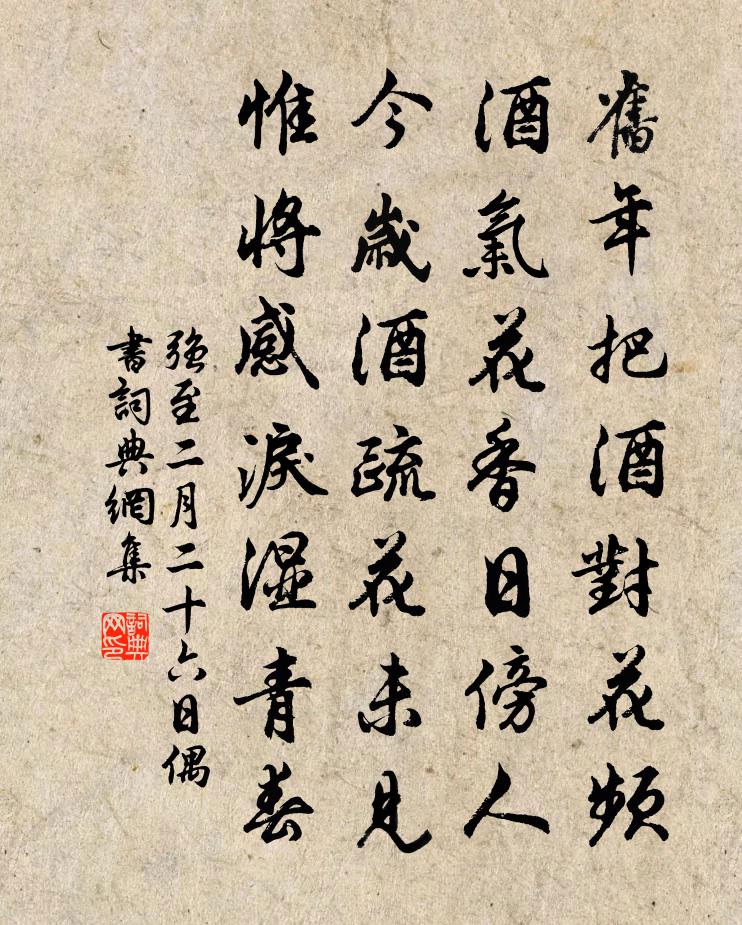 舊年把酒對花頻
酒氣花香日傍人
今歲酒疏花未見
惟將感淚濕青春
強至二月二十六日偶
書詞典網集
詞典网印